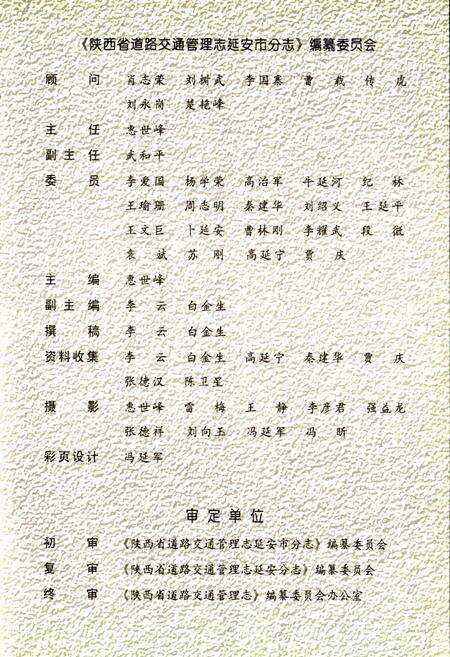 《陕西省道路交通管理志延安市分志》编纂委员会
顾 问 肖志荣 刘树武 李国寨 曹 毅 传 虎
刘永岗 楚艳峰
主 任 惠世峰
副主任 武和平
委 员 李爱国 杨学荣 高治军 牛延河 纪 林
王瑜珊 周志明 秦建华 刘绍义 王延平
王文巨 卜延安 曹林刚 李耀武 段 微
袁 斌 苏 刚 高延宁 贾 庆
主 编 惠世峰
副主编 李 云 白金生
撰 稿 李 云 白金生
资料收集 李 云 白金生 高延宁 秦建华 贾 庆
张德汉 陈卫星
摄 影 惠世峰 雷 梅 王 静 李彦君 强益龙
张德祥 刘向玉 冯延军 冯 昕
彩页设计 冯延军
审定单位
初 审 《陕西省道路交通管理志延安市分志》编纂委员会
复 审 《陕西省道路交通管理志延安分志》编纂委员会
终 审 《陕西省道路交通管理志》编纂委员会办公室